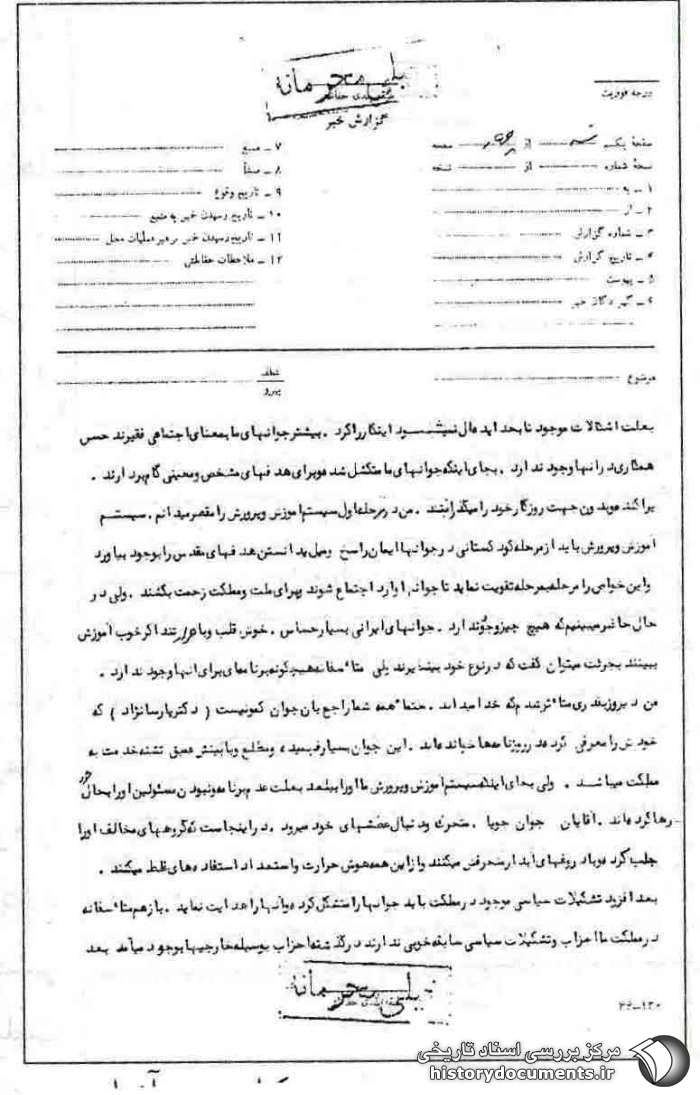 خیلی محرمانه
گزارش خبر
درجه فوریت
صفحه یکم از صفحه
نسخه شماره از نسخه
۱ ـ به
۲ ـ از
۳ ـ شماره گزارش
۴ ـ تاریخ گزارش
۵ ـ پیوست
۶ ـ گیرندگان خبر
۷ ـ منبع
۸ ـ منشأ
۹ ـ تاریخ وقوع
۱۰ ـ تاریخ رسیدن خبر به منبع
۱۱ ـ تاریخ رسیدن خبر به رهبر عملیات محل
۱۲ ـ ملاحظات حفاظتی
موضوع
عطف
پیرو
بعلت اشکالات موجود تا بحد اید مال نمیشود اینکار را کرد . بیشتر جوانهای ما بمعنای اجتماعی فقیرند حس
همکاری در انها وجود ندارد . بجای اینکه جوانهای ما متشکل شده و برای هدفهای مشخص و معینی گام بردارند .
پراکنده و بدون جهت روزگار خود را میگذرانند . من در مرحله اول سیستم اموزش و پرورش را مقصر میدانم . سیستم
آموزش و پرورش باید از مرحله کودکستانی در جوانها ایمان راسخ و میل بدانستن هدفهای مقدس را بوجود بیاورد
و این خواص را مرحله بمرحله تقویت نماید تا جوانها وارد اجتماع شوند و برای ملت و مملکت زحمت بکشند . ولی در
حال حاضر میبینیم که هیچ چیز وجود ندارد . جوانهای ایرانی بسیار حساس . خوش قلب و با هستند اگر خوب آموزش
ببینند بجرئت میتوان گفت که در نوع خود بینظیرند ولی متأسفانه هیچگونه برنامه‌ای برای انها وجود ندارد .
من دیروز بقدری متأثر شدم که خدا میداند . حتما همه شما راجع بان جوان کمونیست ( دکتر پارسانژاد ) که
خودش را معرفی کرده در روزنامه‌ها خوانده‌اید . این جوان بسیار فهمیده و مطلع و با بینش عمیق تشنه خدمت به
مملکت میباشد . ولی بجای اینکه سیستم آموزش و پرورش ما او را بعلت عدم برنامه و نبودن مسئولین او را بحال خود
رها کرده‌اند . آقایان جوان جویا . متحرک و دنبال عطشهای خود میرود . در اینجاست که گروههای مخالف او را
جلب کرده و باد روغهای آبدار منحرفش میکنند و از این همه هوش حرارت و استعداد استفاده‌های غلط میکنند .
بعد افزود تشکیلات سیاسی موجود در مملکت باید جوانها را متشکل کرده و انها را هدایت نماید . باز هم متأسفانه
در مملکت ما احزاب و تشکیلات سیاسی سابقه خوبی ندارند در گذشته احزاب بوسیله خارجیها بوجود میآمد بعد
خیلی محرمانه
مرکز بررسی اسناد تاریخی
historydocuments.ir